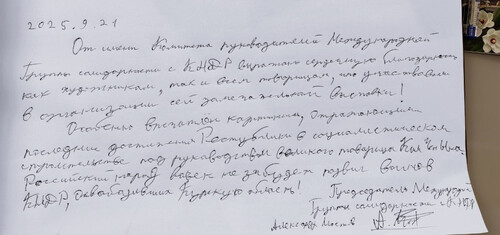 2025.9.21
От имени Комитета руководителей Международной
Группы солидарности с КНДР выражаем сердечную благодарность
как художникам, так и всем товарищам, что участвовали
в организации сей замечательной выставки!
Особенно впечатлили картины, отражающие
последние достижения Республики в социалистическом
строительстве под руководством великого товарища Ким Чен Ына.
Российский народ вовек не забудет подвиг воинов
КНДР, освободивших Курскую область!
Председатель Междунар.
Группы солидарности с КНДР
Александр